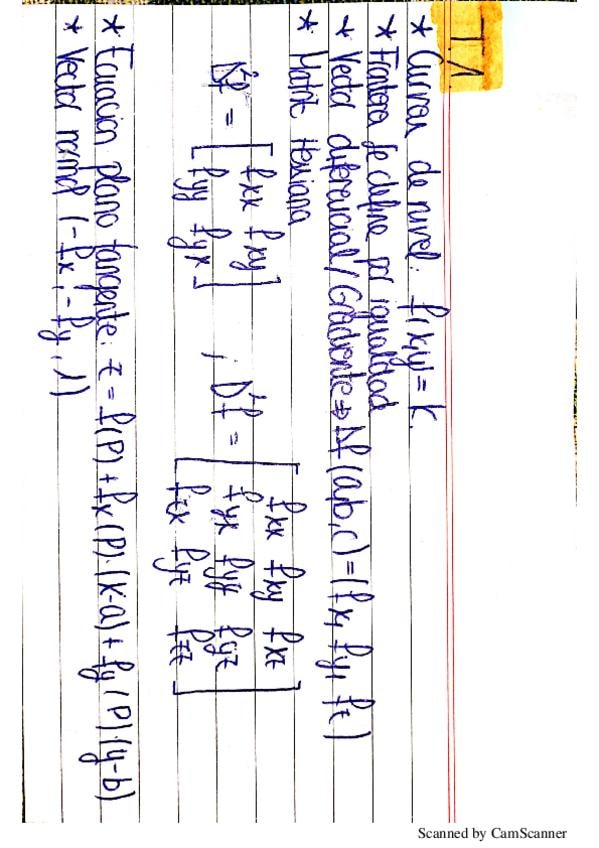 T.1
* Curvas de nivel: f(x,y)=k
* Frontera se define por igualdad
* Vector diferencial/Gradiente => Δf (a,b,c) = (fx, fy, fz)
* Matriz Hessiana
D²f = [ fxx fxy
fyy fyx ] ; D²f = [ fxx fxy fxz
fyx fyy fyz
fzx fyz fzz ]
* Ecuación plano tangente: z = f(P) + fx(P)·(x-a) + fy(P)(y-b)
* Vector normal (-fx, -fy, 1)
Scanned by CamScanner